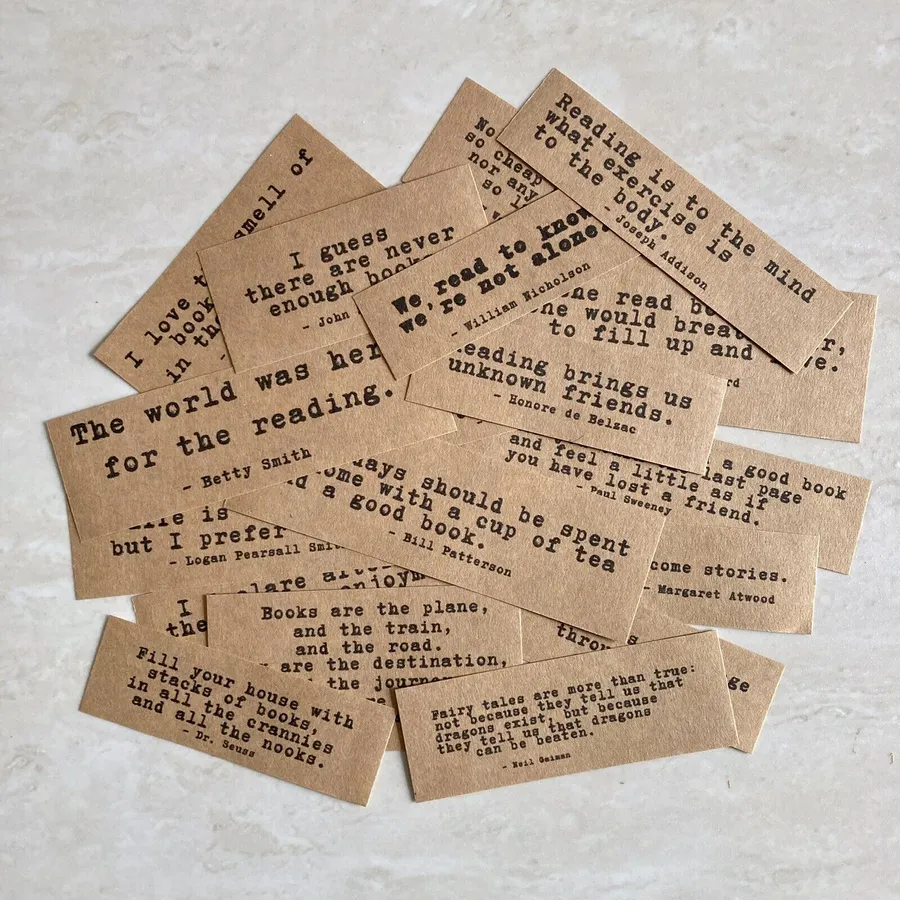 Reading is to the mind
what exercise is
to the body.
- Joseph Addison
No
so cheap
nor any
so l
I love t
smell of
book
in th
I guess
there are never
enough book
- John
We read to know
we're not alone.
- William Nicholson
he read be
he would breat r,
to fill up and ve.
rd
eading brings us
unknown friends.
- Honore de Belzac
The world was her
for the reading.
- Betty Smith
a good book
last page
and feel a little as if
you have lost a friend.
- Paul Sweeney
days should be spent
ome with a cup of tea
d a good book.
- Bill Patterson
is
but I prefer
- Logan Pearsall Smi
come stories.
- Margaret Atwood
I clare afte
the enjoym
Books are the plane,
and the train,
and the road.
are the destination,
the journe
throu
ge
Fill your house with
stacks of books,
in all the crannies
and all the nooks.
- Dr. Seuss
Fairy tales are more than true:
not because they tell us that
dragons exist, but because
they tell us that dragons
can be beaten.
- Neil Gaiman